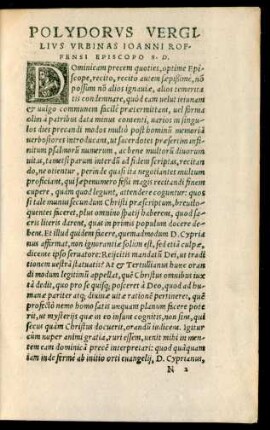 POLYDORVS VERGI
LIVS VRBINAS IOANNI ROF
FENSI EPISCOPO S. D.
Dominicam precem quoties, optime Epi
scope, recito, recito autem sæpissime, nõ
possum nõ alios ignauiæ, alios temerita
tis condemnare, quòd eam uelut tritam
et uulgo communem facilè prætermittant, uel formu
lam à patribus datam minus contenti, uarios in singu
los dies precandi modos multò post hominũ memoriã
uerbosiores introducant, ut sacerdotes præsertim insti
tutum psalmorũ numerum, ac bene multorũ diuorum
uitas, tametsi parum interdũ ad fidem scriptas, recitan
do, ne otientur, perinde quasi ita negotiantes multum
proficiant, qui sæpenumero fessi magis recitandi finem
cupere, quàm quod legunt, attendere coguntur: quos
si tale munus secundum Christi præscriptum, breuilo
quentes facerent, plus omnino spatij haberent, quod sa
cris literis darent, quas in primis populum docere de
bent. Et illud quidem facere, quemadmodum D. Cypria
nus affirmat, non ignorantiæ solùm est, sed etiã culpæ,
dicente ipso seruatore: Reijcitis mandatũ Dei, ut tradi
tionem uestrã statuatis. At & Tertullianus hunc oran
di modum legitimũ appellat, quẽ Christus omnibus tux
tà dedit, quo pro se quisq; posceret à Deo, quod ad hu
manæ pariter atq; diuinæ uitæ rationẽ pertineret, quæ
profectò nemo homo satis unquam planum facere pote
rit, ut mysterijs quæ ei eo infunt cognitis, non sim, qui
secus quàm Christus docuerit, orandũ indicent. Igitur
cum super animi gratia, ruri essem, uenit mihi in men
tem eam dominicã precẽ interpretari: quod quanquam
iam inde fermè ab initio orti euangelij, D. Cyprianus,
N 2